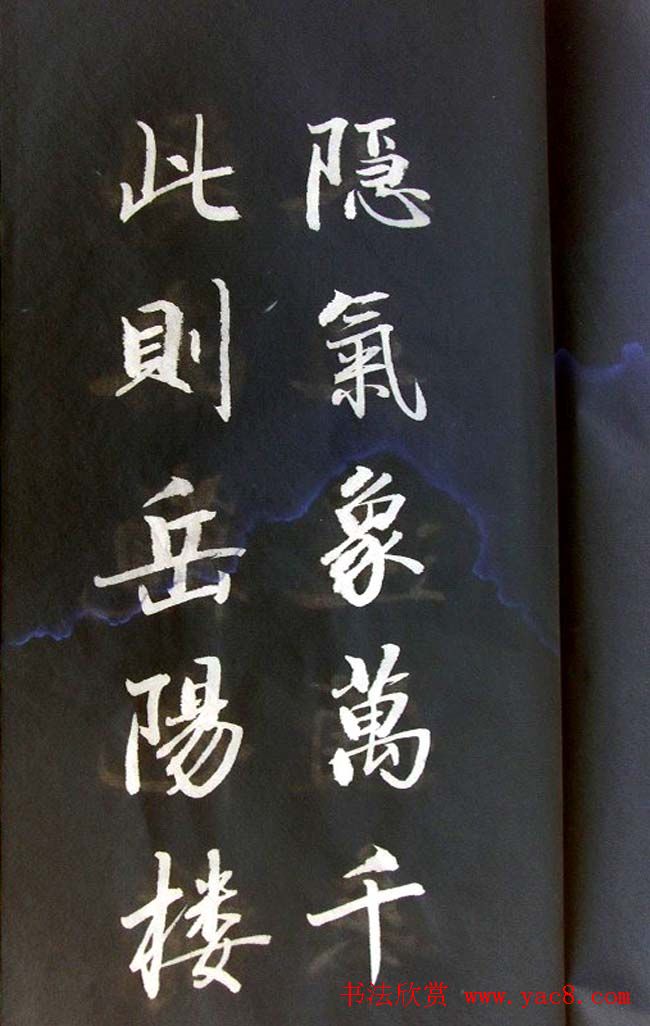 隐氣象萬千
此則岳陽楼
书法欣赏 www.yac8.com